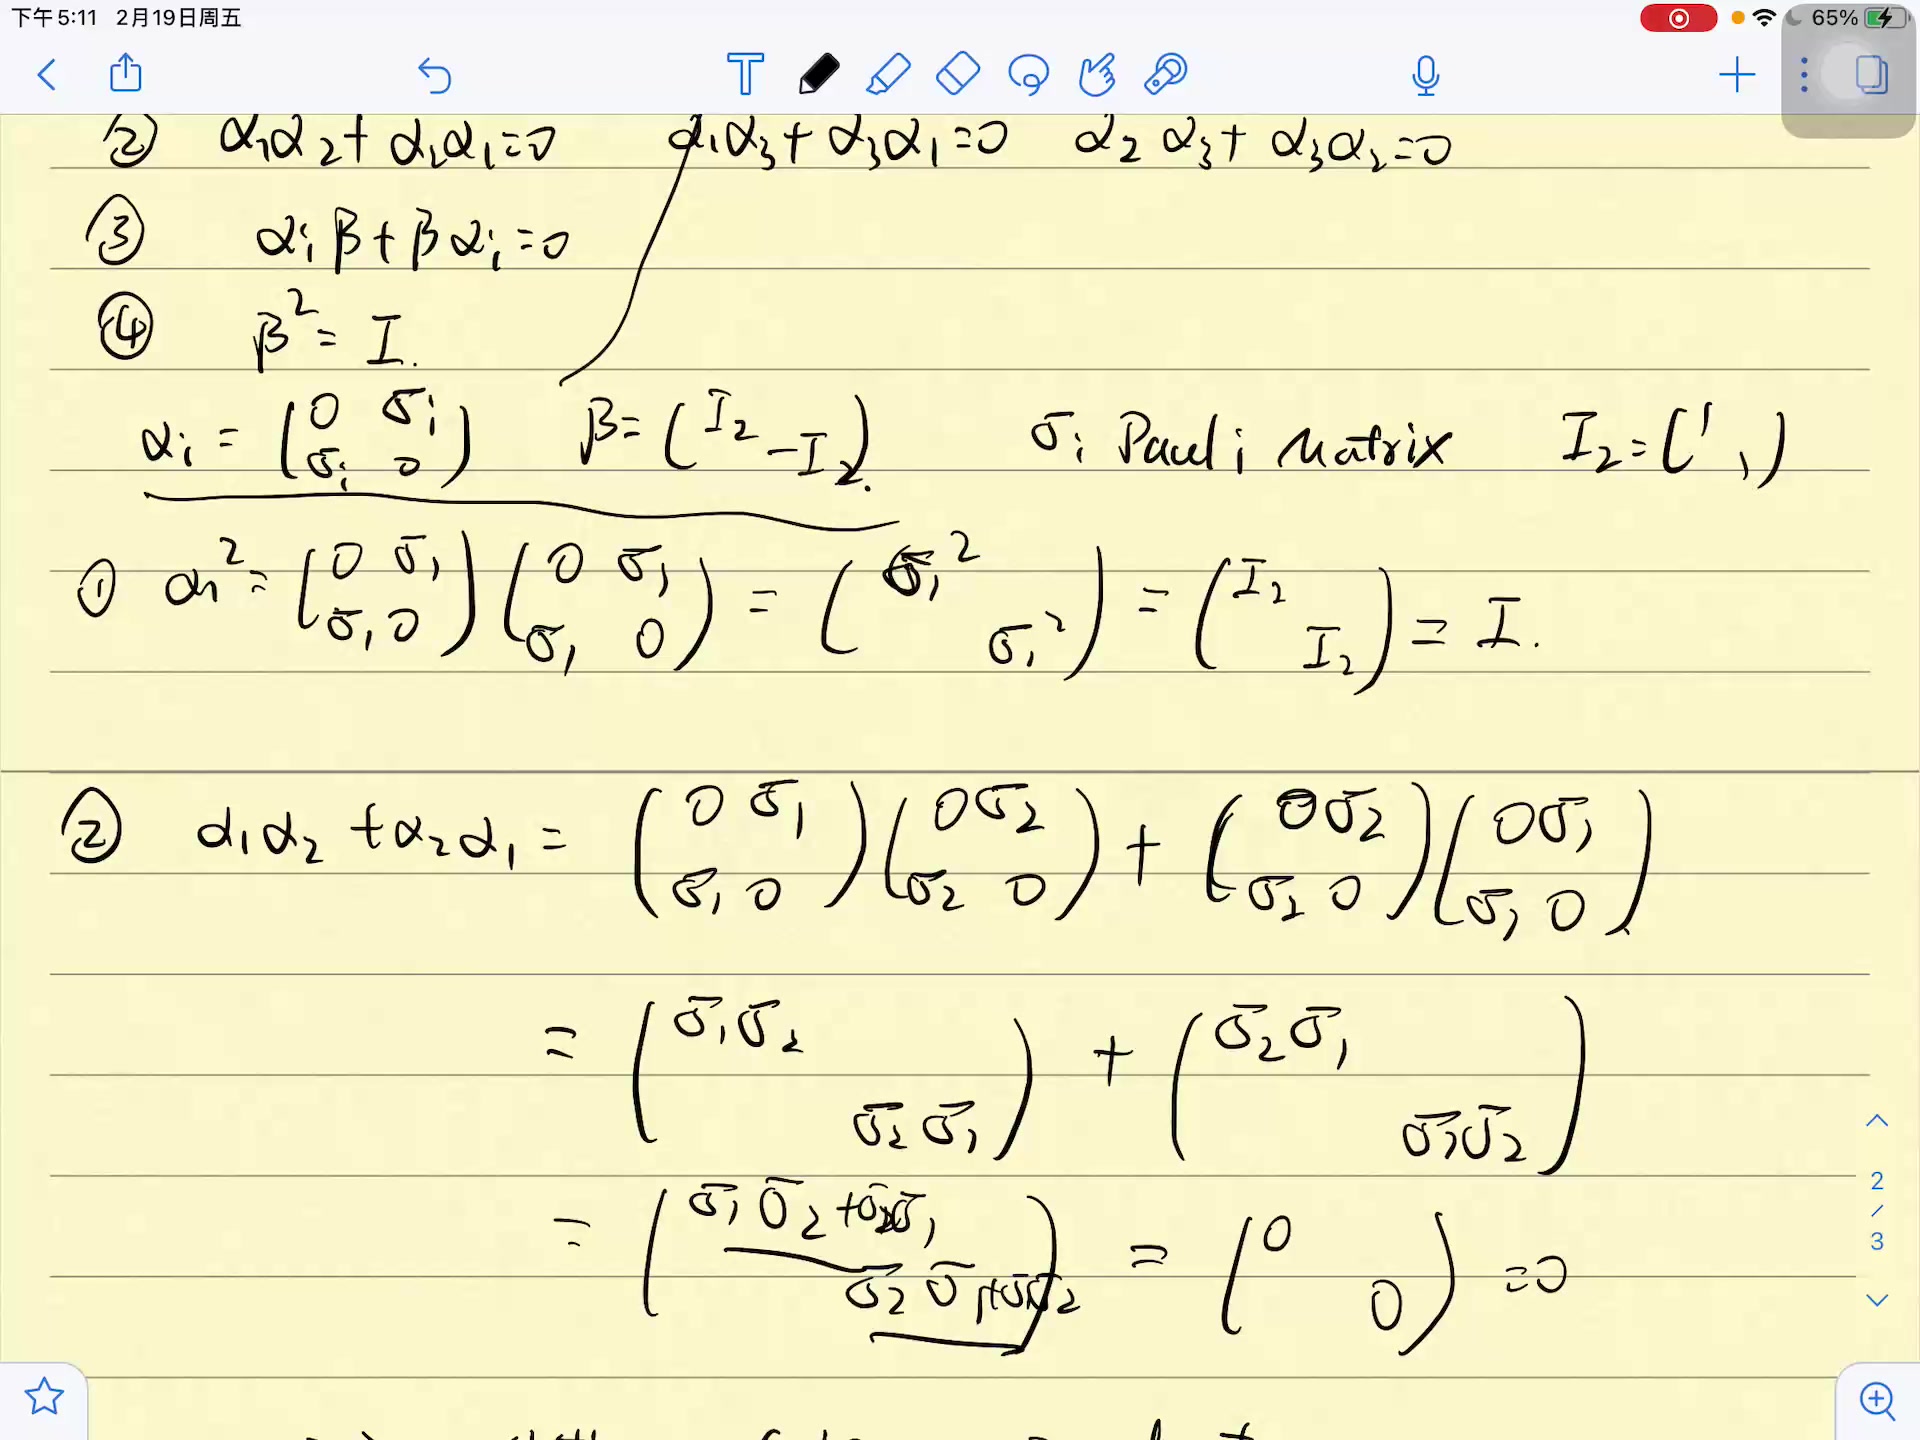 下午5:11 2月19日周五 65%
② α₁α₂+α₂α₁=0 α₁α₃+α₃α₁=0 α₂α₃+α₃α₂=0
③ αᵢβ+βαᵢ=0
④ β²=I.
αᵢ = (0 σᵢ; σᵢ 0) β=(I₂ -I₂). σᵢ Pauli Matrix I₂=(1 1)
① α₁²= (0 σ₁; σ₁ 0)(0 σ₁; σ₁ 0) = (σ₁² σ₁²) = (I₂ I₂) = I.
② α₁α₂+α₂α₁ = (0 σ₁; σ₁ 0)(0 σ₂; σ₂ 0) + (0 σ₂; σ₂ 0)(0 σ₁; σ₁ 0)
= (σ₁σ₂ σ₂σ₁) + (σ₂σ₁ σ₁σ₂)
= (σ₁σ₂+σ₂σ₁ σ₂σ₁+σ₁σ₂) = (0 0) =0
2/3